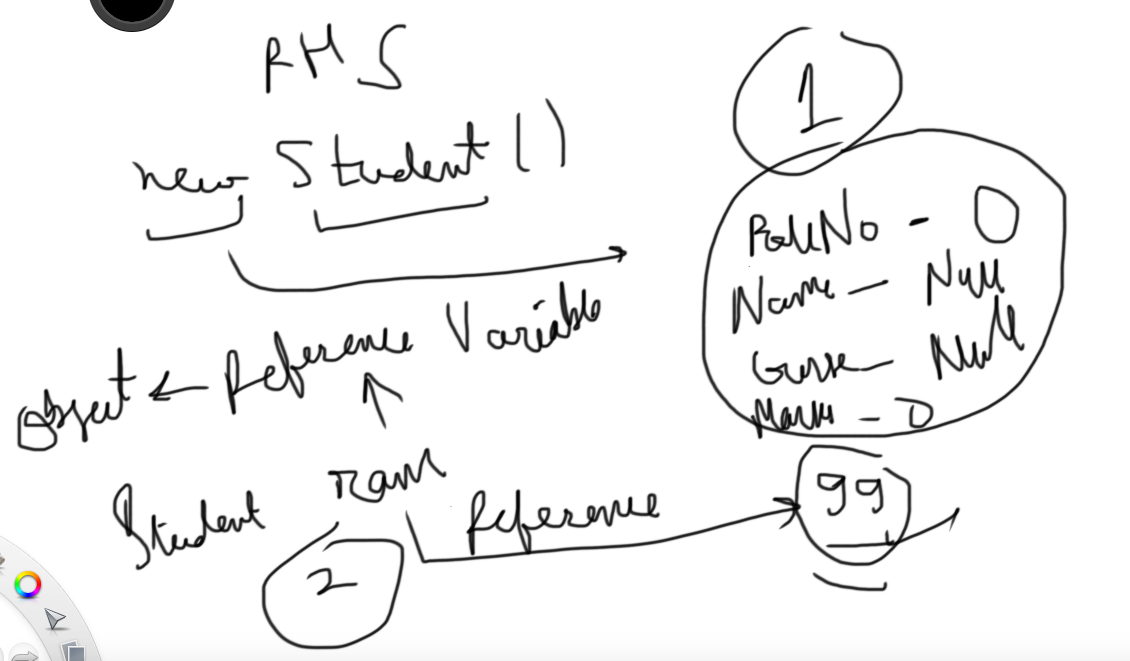 RHS
new Student ()
1
RollNo - 0
Name - Null
Course - Null
Marks - 0
Object ← Reference Variable
Student ram
Reference
99
2